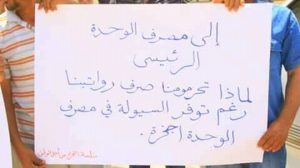 إلى مصرف الوحدة
الرئيسى
لماذا تحرمونا صرف رواتبنا
رغم توفر السيولة في مصرف
الوحدة اجخرة.